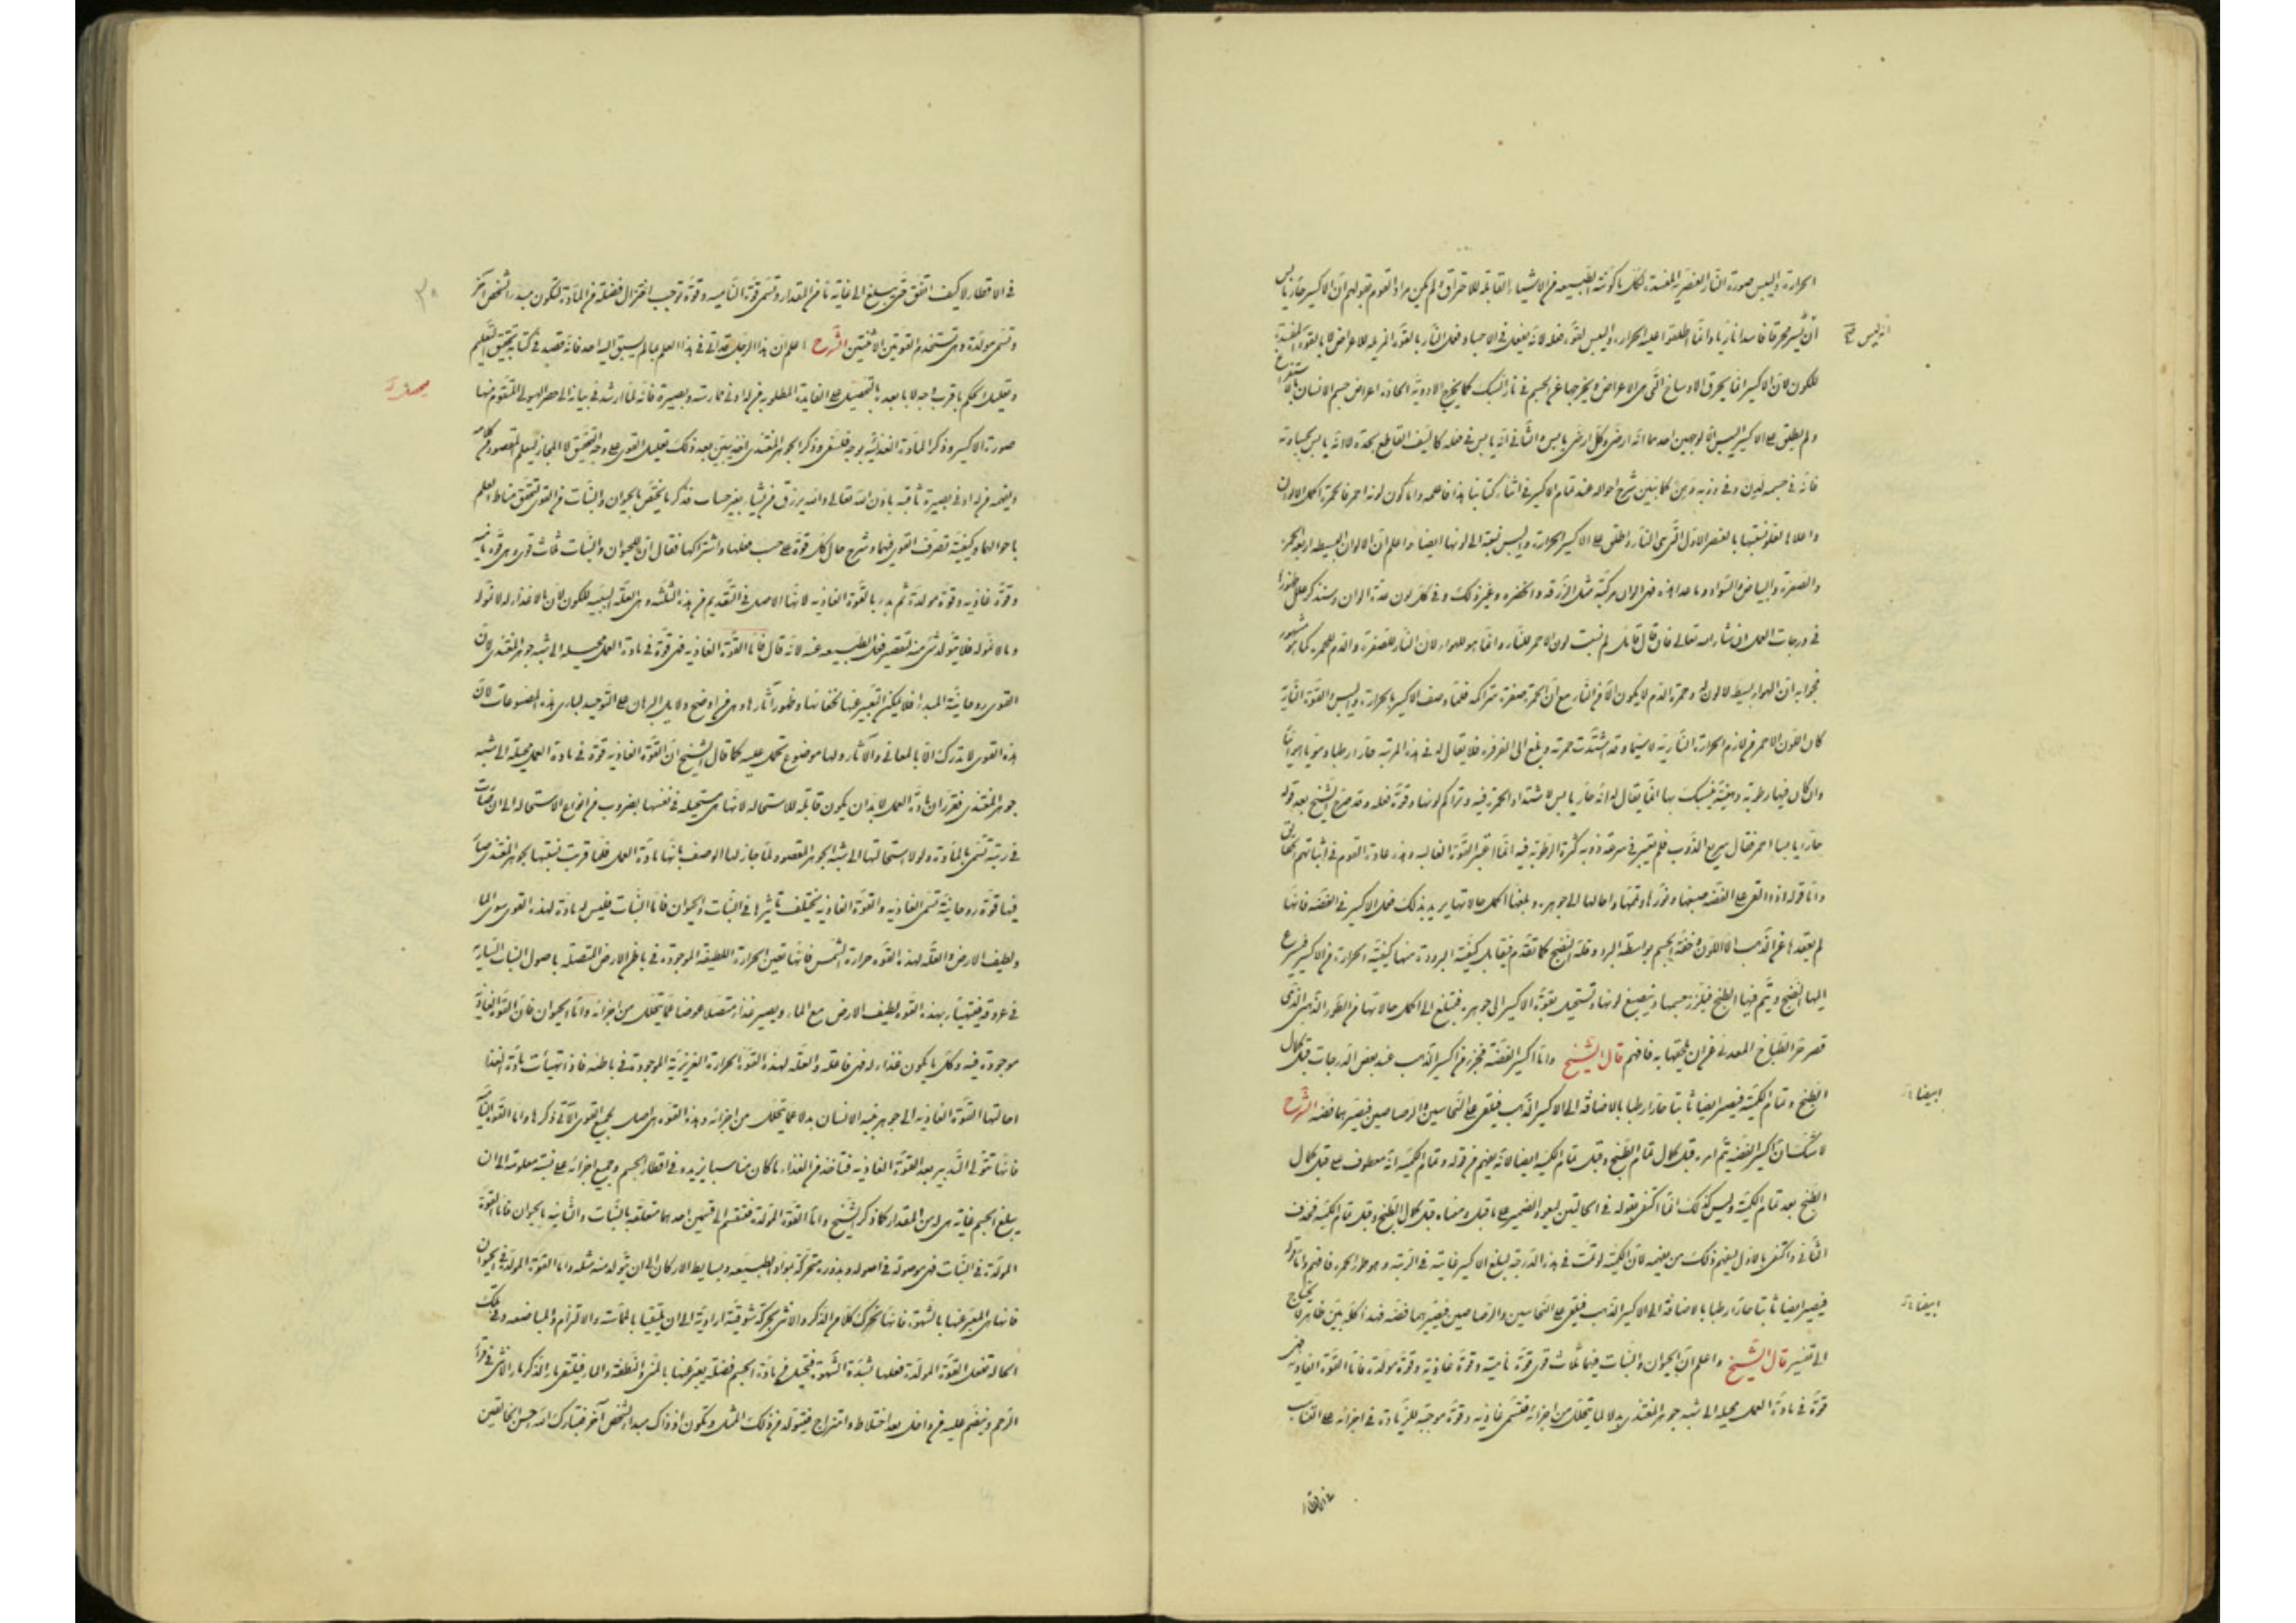 الحرارة واليبس صورة النار العنصرية المفسدة لكل ما كونته الطبيعه من الاشياء القابلة للاحتراق ولم يكن مراد القوم بقولهم ان الاكسير حار يابس
انه ليس محرقا فاسدا ناريا وانما اطلقوا عليه الحرارة واليبس لقوة فعله لانه يفعل في الاجساد فعل النار بالقوة المزيله للاعراض لا بالقوة المفسدة
للكون لان الاكسير انما يحرق الاوساخ التي هي الاعراض ويخرجها عن الجسم في نار السبك كما يخرج الادوية الحادة اعراض جسم الانسان
ولم يطلق على الاكسير اليبس الا لوجهين احدهما انه ارضي وكل ارضي يابس والثاني انه يابس في فعله كالسيف القاطع بحده لا انه يابس بجساوته
فانه في جسمه لدن وفي ذوبه دهن كما نبين شرح احواله عند تمام الاكسير في اثناء كتابنا هذا فاعلمه واما كون لونه احمر فالحمرة اكمل الالوان
واعلاها لعلو نسبتها بالعنصر الاول الذي هي النار واطلق على الاكسير الحرارة واليبس نسبة الى لونها ايضا واعلم ان الالوان البسيطه اربعه الحمرة
والصفرة والبياض والسواد وما عدا هذه فهي الوان مركبة مثل الزرقه والخضره وغير ذلك وفي كل لون عدة الوان وسنذكر علل ظهورها
في درجات العمل ان شاء الله تعالى فان قال قائل لم نسبت لون الاحمر للنار وانما هو للهواء لان النار للصفرة والدم للحمرة كما هو مشهور
فجوابه ان الهواء بسيط لا لون له وحمرة الدم لا يكون الا من النار مع ان الحمرة صفرة متراكمه فلما وصف الاكسير بالحرارة واليبس والقوة النارية
كان اللون الاحمر من لازم الحرارة النارية لا سيما وقد اشتدت حمرته وبلغ الى الفرفرة فلا يقال له في هذه المرتبه حار رطبا دمويا هوائيا
وان كان فيها رطوبة دهنية فينسبك بها انما يقال له انه حار يابس لاشتداد الحمرة فيه وتراكم لونها وقوة فعله وقد صرح الشيخ بعد قوله
حار يابسا احمر فقال سريع الذوب فلم يعتبر في سرعة ذوبه كثرة الرطوبة فيه انما اعتبر القوة الغالبه وهذه عادة القوم في اثباتهم الحقائق
واما قوله اذا القى على الفضه صبغها وفوزها وتممها واحالها الى جوهره وبلغها اكمل حالاتها يريد بذلك فعل الاكسير في الفضه فانها
لم يقعدها عن الذهب الا اللون وخفة الجسم بواسطة البرد وقلة النضج كما تقدم فيقابل كيفية البرودة منها كيفية الحرارة من الاكسير فيسرع
اليها النضج ويتم فيها الطبخ فيلزز جسمها وينصبغ لونها وتستحيل بقوة الاكسير الى جوهره فتبلغ الى اكمل حالاتها من الطور الذهبي الذي
قصر حر الطباخ المعدني عن ان يلحقها به فافهم قال الشيخ واما اكسير الفضة فيجزء من اكسير الذهب عند بعض الدرجات قبل كمال
الطبخ وتمام الكمية فيصير ابيضا ثابتا حارا رطبا بالاضافة الى الاكسير الذهب فيلقى على النحاسين والرصاصين فيصيرهما فضه الشرح
لا شك ان اكسير الفضة يتم امره قبل كمال تمام الطبخ وقبل تمام الكمية ايضا لانه يفهم من قوله وتمام الكمية انه معطوف على قبل كمال
الطبخ بعد تمام الكمية وليس كذلك انما اكتفى بقوله في الحالتين ليعود الضمير على ما قبله ومعناه قبل كمال الطبخ وقبل تمام الكمية فحذف
الثاني واكتفى بالاول ليفهم ذلك من يفهمه لان الكمية لو تمت في هذه الدرجة ليبلغ الاكسير غايته في الرتبة وهو طور الحمره فافهم واما قوله
فيصير ابيضا ثابتا حارا رطبا بالاضافة الى الاكسير الذهب فيلقى على النحاسين والرصاصين فيصيرهما فضه فهذا كله بين ظاهر لا يحتاج
الى تفسير قال الشيخ واعلم ان الحيوان والنبات فيهما ثلث قوى قوة نامية وقوة غاذية وقوة مولدة فاما القوة الغاذية فهي
قوة في مادة العمل محيله الى شبه جوهر المغتذي بدلا لما يتحلل من اجزائه فتسمى غاذيه وقوة موجبة للزيادة في اجزائه على التناسب
في الاقطار
انه ليس
ابيضا
ابيضا
في الاقطار لا كيف اتفق حتى يبلغ الى غايته ما من المقدار وتسمى قوة النامية وقوة توجب اختزال فضلة من المادة لتكون مبدء لشخص آخر
وتسمى مولدة وهي تستخدم القوتين الاثنتين الشرح اعلم ان هذا الرجل قد اتى في هذا العلم بما لم يسبق اليه احد فانه قصد في كتابه تحقيق التعليم
وتعليل الحكم باقرب وجه لا بابعد بالتحصيل على الفايدة المطلوبة من له ادنى ممارسة وبصيرة فانه لما ارشد في بيانه الى حصر الهيولى المتقوم منها
صورة الاكسير وذكر المادة الغذائية بوجه فلسفي وذكر الجوهر المغتذى اخذ يبين بعد ذلك تعليل القوى على وجه التحقيق لا المجاز ليعلم المقصود من كلامه
ويفهمه من له ادنى بصيرة ثاقبة باذن الله تعالى والله يرزق من يشاء بغير حساب فذكر ما يختص بالحيوان والنبات من القوى لتحقق مناط العلم
باحوالهما وكيفية تصرف القوى فيهما وشرح حال كل قوة على حسب فعلها واشتراكها فقال ان للحيوان والنبات ثلث قوى وهي قوة نامية
وقوة غاذيه وقوة مولدة ثم بدء بالقوة الغاذيه لانها الاصل في التقديم من هذه الثلثه وهي العلة السببيه للكون لان ما لا غذاء له لا نمو له
وما لا نمو له فلا يتولد شيء منه لتقصير فعل الطبيعه عنه لانه قال فاما القوة الغاذيه فهي قوة في مادة العمل محيله الى شبه جوهر المغتذى لان
القوى روحانية المبدا فلا يمكن التعبير عنها لخفائها وظهور آثارها وهي من اوضح دلايل البرهان على التوحيد لباري هذه المصنوعات لان
هذه القوى لا تدرك الا بالمعاني والآثار ولها موضوع تحمل عليه كما قال الشيخ ان القوة الغاذيه قوة في مادة العمل محيلة الى شبه
جوهر المغتذى فقرر ان مادة العمل لا بد ان يكون قابله للاستحاله لانها هي مستحيله في نفسها بضروب من انواع الاستحاله الى ان صارت
في رتبة تسمى بالمادة ولولا استحالتها الى شبه الجوهر المقصود لما جاز لها الوصف بانها مادة العمل فلما قربت نسبتها بجوهر المغتذى صار
فيها قوة روحانية تسمى الغاذيه والقوة الغاذيه يختلف تاثيرها في النبات والحيوان فاما النبات فليس له مادة لهذه القوى سوى الماء
ولطيف الارض والعلة لهذه القوة حرارة الشمس فانها تعين الحرارة اللطيفة الموجودة في باطن الارض المتصلة باصول النبات السارية
في عروقه فيتهيأ بهذه القوة لطيف الارض مع الماء ويصير غذاء متصلا عوضا لما يتحلل من اجزائه واما الحيوان فان القوة الغاذية
موجودة فيه وكل ما يكون غذاء له فهي فاعلة والعلة لهذه القوة الحرارة الغريزية الموجودة في باطنه فاذا تهيأت مادة الغذا
احالتها القوة الغاذيه الى جوهر بنية الانسان بدلا عما يتحلل من اجزائه وهذه القوة هي اصل لجميع القوى الآتي ذكرها واما القوة النامية
فانها تتولى التدبير بعد القوة الغاذيه فتاخذ من الغذاء ما كان مناسبا يزيده في اقطار الجسم وجميع اجزائه على نسبة معلومة الى ان
يبلغ الجسم غايته هي له من المقدار كما ذكر الشيخ واما القوة المولدة فتنقسم الى قسمين احدهما متعلقه بالنبات والثانيه بالحيوان فاما القوة
المولدة في النبات فهي موصولة في اصوله وبذوره متحركة بمواد الطبيعه وبسايط الاركان الى ان يتولد منه مثله واما القوة المولدة في الحيوان
فانها هي المعبر عنها بالشهوة فانها تحرك كلا من الذكر والانثى بحركة شوقية ارادية الى ان يلتقيا بالمماسة والالتزام والمباضعه وفي تلك
الحاله تفعل القوة المولدة فعلها بشدة الشهوة فتحيل من مادة الجسم فضلة يعبر عنها بالمنى والنطفة والماء فيلتقى ماء الذكر بماء الانثى في قرار
الرحم وينضم عليه من داخل بعد اختلاط وامتزاج فيتولد من ذلك المثل ويكون اذ ذاك مبدا لشخص آخر فتبارك الله احسن الخالقين